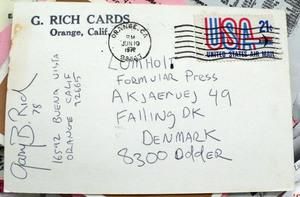 G. RICH CARDS
Orange, Calif.
ORANGE, CA
PM
JUN 19
USA 21¢
UNITED STATES AIR MAIL
LOMHOLT
FORMULAR PRESS
AKJAERVEJ 49
FALLING DK
DENMARK
8300 Odder
16592 BUENA VISTA
ORANGE CALIF
92665
Gary B. Rich
78